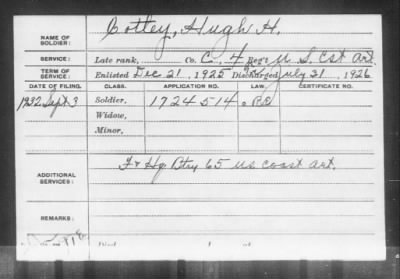 NAME OF SOLDIER: Cottey, Hugh H.
SERVICE: Late rank, Co. C, 4 Reg't U S. Cst Art.
TERM OF SERVICE: Enlisted Dec 21, 1925 Discharged July 21, 1926
DATE OF FILING. CLASS. APPLICATION NO. LAW. CERTIFICATE NO.
1932 Sept 3 Soldier, 1724514
Widow,
Minor,
ADDITIONAL SERVICES: F & Hq. Btry 65 US Coast Art.
REMARKS: